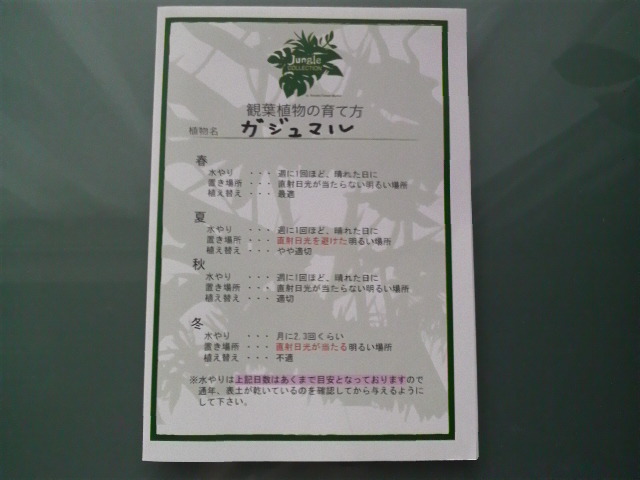 Jungle
COLLECTION
観葉植物の育て方
植物名 ガジュマル
春
水やり ・・・ 週に1回ほど、晴れた日に
置き場所 ・・・ 直射日光が当たらない明るい場所
植え替え ・・・ 最適
夏
水やり ・・・ 週に1回ほど、晴れた日に
置き場所 ・・・ 直射日光を避けた明るい場所
植え替え ・・・ やや適切
秋
水やり ・・・ 週に1回ほど、晴れた日に
置き場所 ・・・ 直射日光が当たらない明るい場所
植え替え ・・・ 適切
冬
水やり ・・・ 月に2,3回くらい
置き場所 ・・・ 直射日光が当たる明るい場所
植え替え ・・・ 不適
※水やりは上記日数はあくまで目安となっておりますので
通年、表土が乾いているのを確認してから与えるように
して下さい。